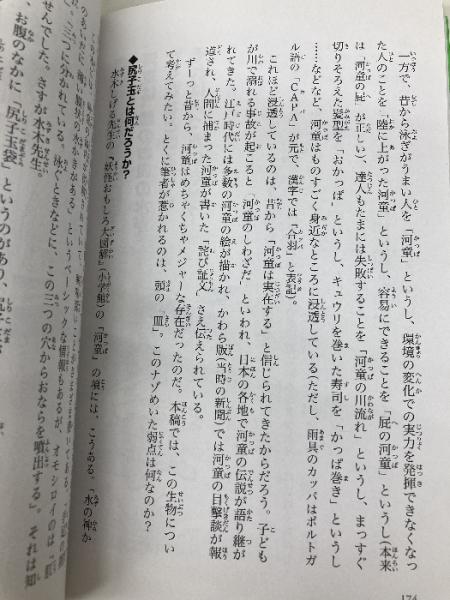 一方で、昔から泳ぎがうまい人を「河童」というし、環境の変化での実力を発揮できなくなっ
た人のことを「陸に上がった河童」というし、容易にできることを「屁の河童」というし(本来
は「河童の屁」が正しい)、達人もたまには失敗することを「河童の川流れ」というし、まっすぐ
切りそろえた髪型を「おかっぱ」というし、キュウリを巻いた寿司を「かっぱ巻き」というし
……などなど、河童はものすごく身近なところに浸透している(ただし、雨具のカッパはポルトガ
ル語の「CAPA」が元で、漢字では「合羽」と表記)。
これほど浸透しているのは、昔から「河童は実在する」と信じられてきたからだろう。子ども
が川で溺れる事故が起こると「河童のしわざだ」といわれ、日本の各地で河童の伝説が語り継が
れてきた。江戸時代には多数の河童の絵が描かれ、かわら版(当時の新聞)では河童の目撃談が報
道され、人間に捕まった河童が書いた「詫び証文」さえ伝えられている。
ずーっと昔から、河童はめちゃくちゃメジャーな存在だったのだ。本稿では、この生物につい
て考えてみたい。とくに筆者が惹かれるのは、頭の「皿」。このナゾめいた弱点は何なのか?
◆尻子玉とは何だろうか?
水木しげる先生の『妖怪おもしろ大図解』(小学館)の「河童」の項には、こうある。「水の神か
というベーシックな情報もあるが、オモシロイのは「肛
三つに分かれてい
泳ぐときなどに、この三つの穴からおならを噴出する。それは知
せんでした。さすが水木先生。
お腹のなかに「尻子玉袋」というのがあり、
174